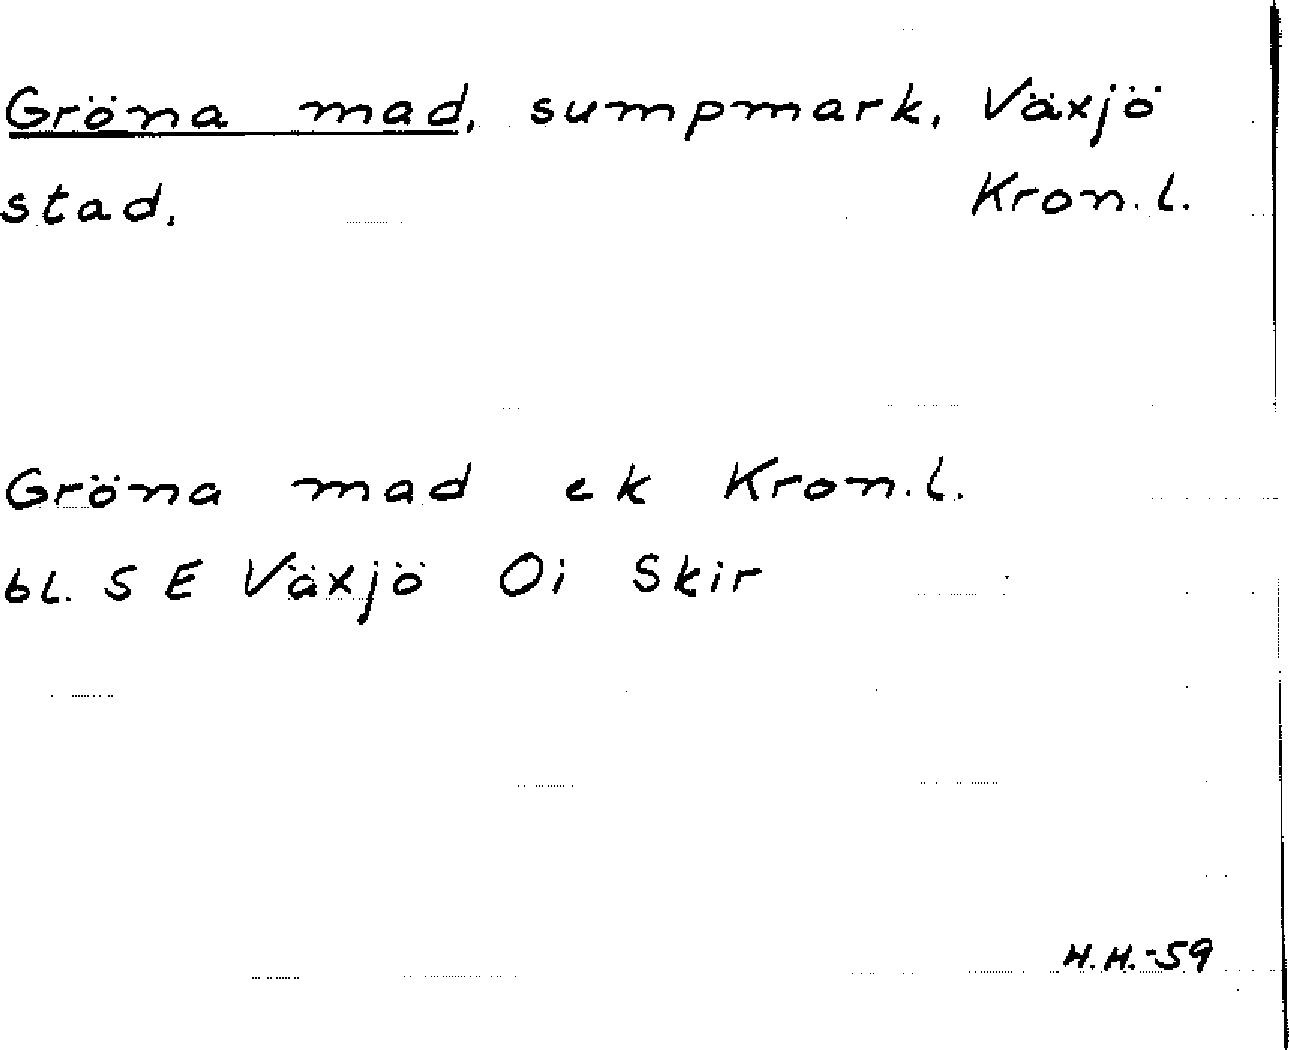 Gröna mad, sumpmark, Växjö
stad. Kron.l.
Gröna mad ek Kron.l.
bl. S E Växjö Oi Skir
H.H.-59